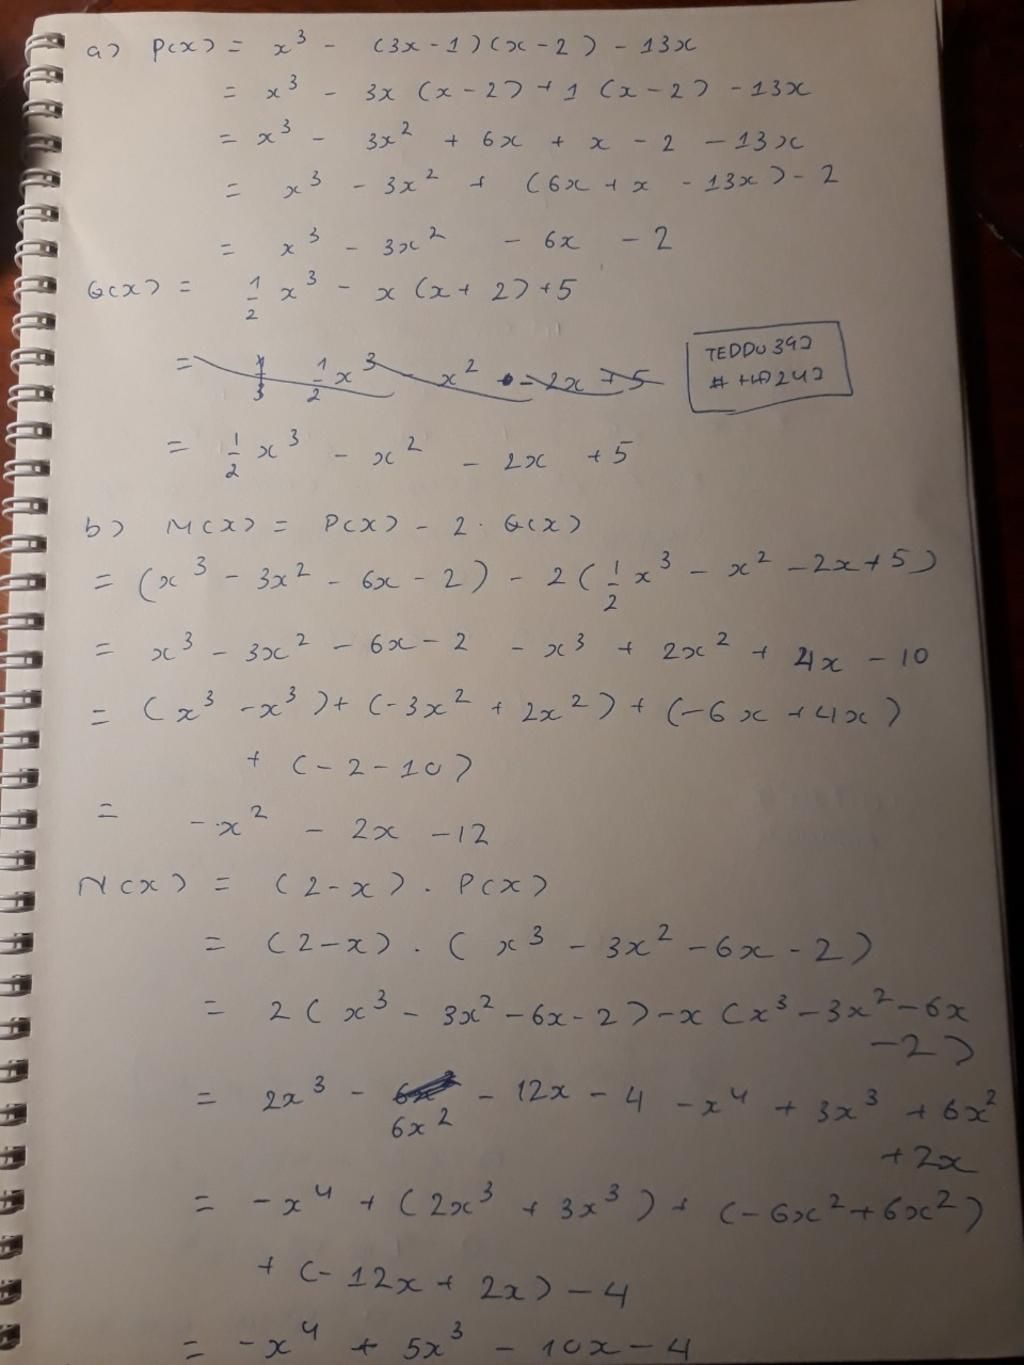 a) P(x) = x³ - (3x - 1)(x - 2) - 13x
= x³ - 3x (x - 2) + 1 (x - 2) - 13x
= x³ - 3x² + 6x + x - 2 - 13x
= x³ - 3x² + (6x + x - 13x) - 2
= x³ - 3x² - 6x - 2
Q(x) = 1/2 x³ - x (x + 2) + 5
= 1/2 x³ - x² - 2x + 5
TEDDU392
= 1/2 x³ - x² - 2x + 5
b) M(x) = P(x) - 2 . Q(x)
= (x³ - 3x² - 6x - 2) - 2 (1/2 x³ - x² - 2x + 5)
= x³ - 3x² - 6x - 2 - x³ + 2x² + 4x - 10
= (x³ - x³) + (-3x² + 2x²) + (-6x + 4x)
+ (-2 - 10)
= -x² - 2x - 12
N(x) = (2 - x) . P(x)
= (2 - x) . (x³ - 3x² - 6x - 2)
= 2 (x³ - 3x² - 6x - 2) - x (x³ - 3x² - 6x
- 2)
= 2x³ - 6x² - 12x - 4 - x⁴ + 3x³ + 6x²
+ 2x
= -x⁴ + (2x³ + 3x³) + (-6x² + 6x²)
+ (-12x + 2x) - 4
= -x⁴ + 5x³ - 10x - 4